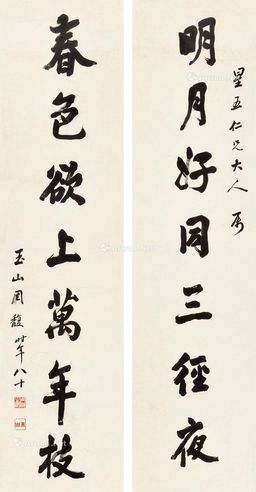 星五仁兄大人属
明月好同三径夜
春色欲上萬年枝
玉山周馥時年八十